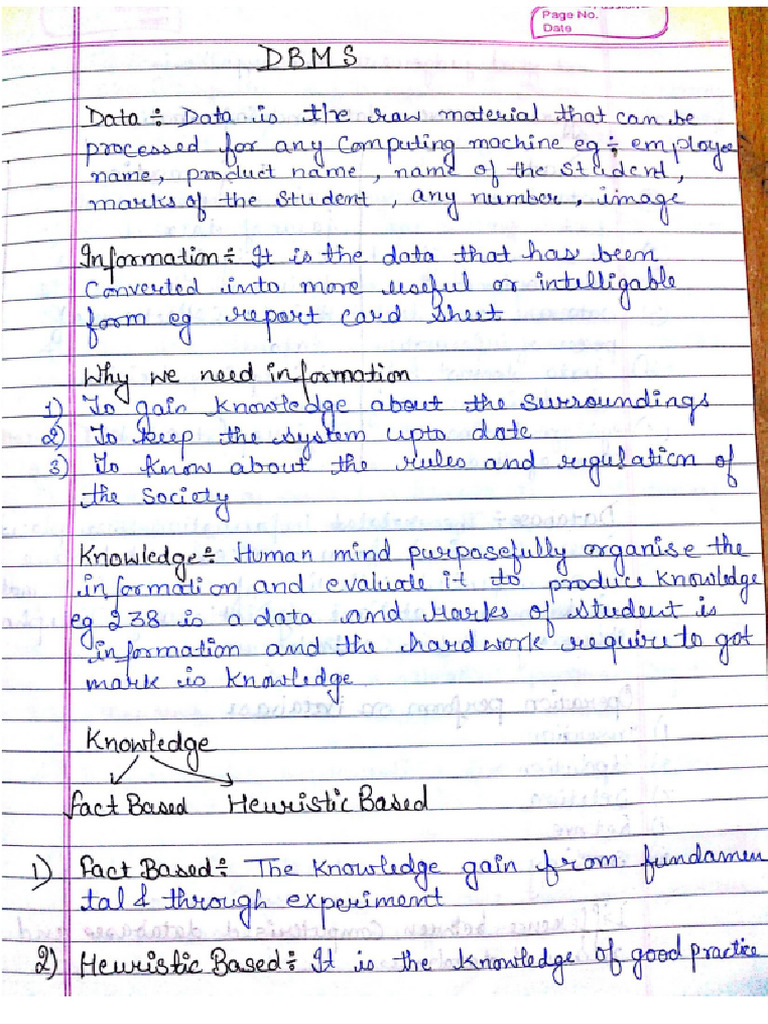 Page No.
Date
DBMS
Data ÷ Data is the raw material that can be
processed for any Computing machine eg ÷ employee
name, product name, name of the student,
marks of the student, any number, image
Information ÷ It is the data that has been
Converted into more useful or intelligable
form eg report card sheet
Why we need information
1) To gain knowledge about the surroundings
2) To keep the system upto date
3) To know about the rules and regulation of
the Society
Knowledge ÷ Human mind purposefully organise the
information and evaluate it to produce knowledge
eg 238 is a data and Marks of student is
information and the hard work require to got
mark is knowledge
Knowledge
Fact Based Heuristic Based
1) Fact Based ÷ The knowledge gain from fundamen
tal & through experiment
2) Heuristic Based ÷ It is the knowledge of good practice